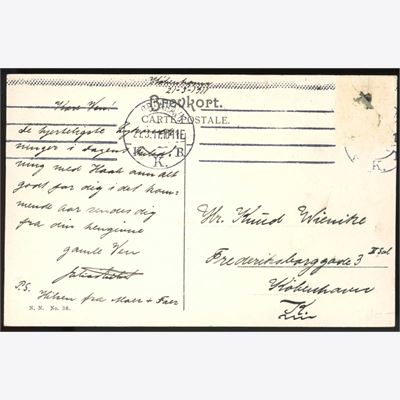 København
21-3-1911
Brevkort.
CARTE POSTALE.
Kære Ven!
De hjerteligste
ninger i dagens
ning med Haab om alt
godt for dig i det kom-
mende aar sendes dig
fra din hengivne
gamle Ven
P.S.
Hilsen fra Moer + Faer
N. N. No. 38.
K. B.
K.
Hr. Knud Wienike
Frederiksborggade 3 II Sal
København
K